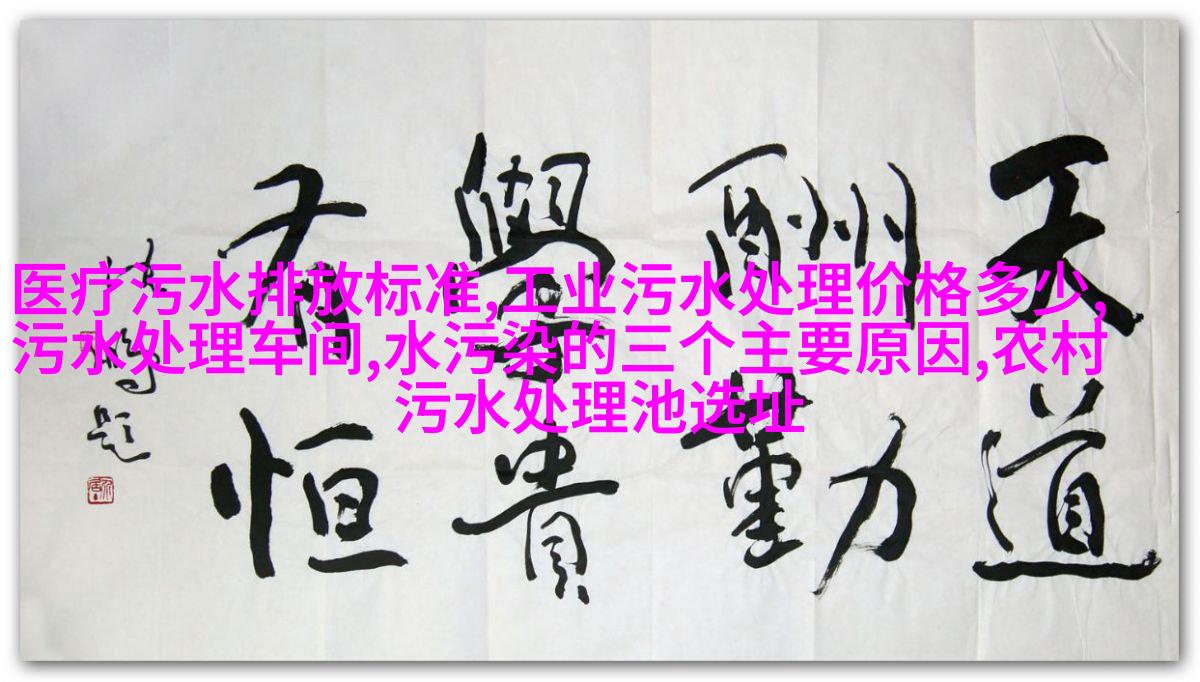 医疗污水排放标准,工业污水处理价格多少,
污水处理车间,水污染的三个主要原因,农村
污水处理池选址
天道
酬勤
學貴
有恒
题